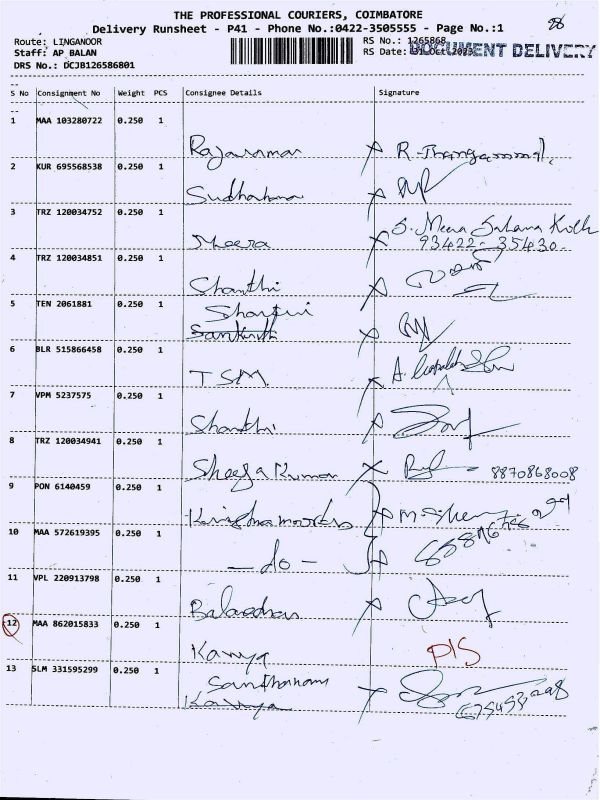 THE PROFESSIONAL COURIERS, COIMBATORE
Delivery Runsheet - P41 - Phone No.:0422-3505555 - Page No.:1
Route: LINGANOOR
RS No.: 1265868
Staff: AP BALAN
RS Date: 31 Oct 2023
DOCUMENT DELIVERY
DRS No.: DCJB126586801
S No Consignment No Weight PCS Consignee Details Signature
1 MAA 103280722 0.250 1
Rajaraman R. Thangammal
2 KUR 695568538 0.250 1
3 TRZ 120034752 0.250 1
Meera S. Meera
93422-35430
4 TRZ 120034851 0.250 1
Shanthi
5 TEN 2061881 0.250 1
6 BLR 515866458 0.250 1
TSM A.
7 VPM 5237575 0.250 1
Shanthi
8 TRZ 120034941 0.250 1
Sheeja Kumar 8870868008
9 PON 6140459 0.250 1
10 MAA 572619395 0.250 1
- do -
11 VPL 220913798 0.250 1
12 MAA 862015833 0.250 1
Kavya P/S
13 SLM 331595299 0.250 1
Santhanam
Kavya